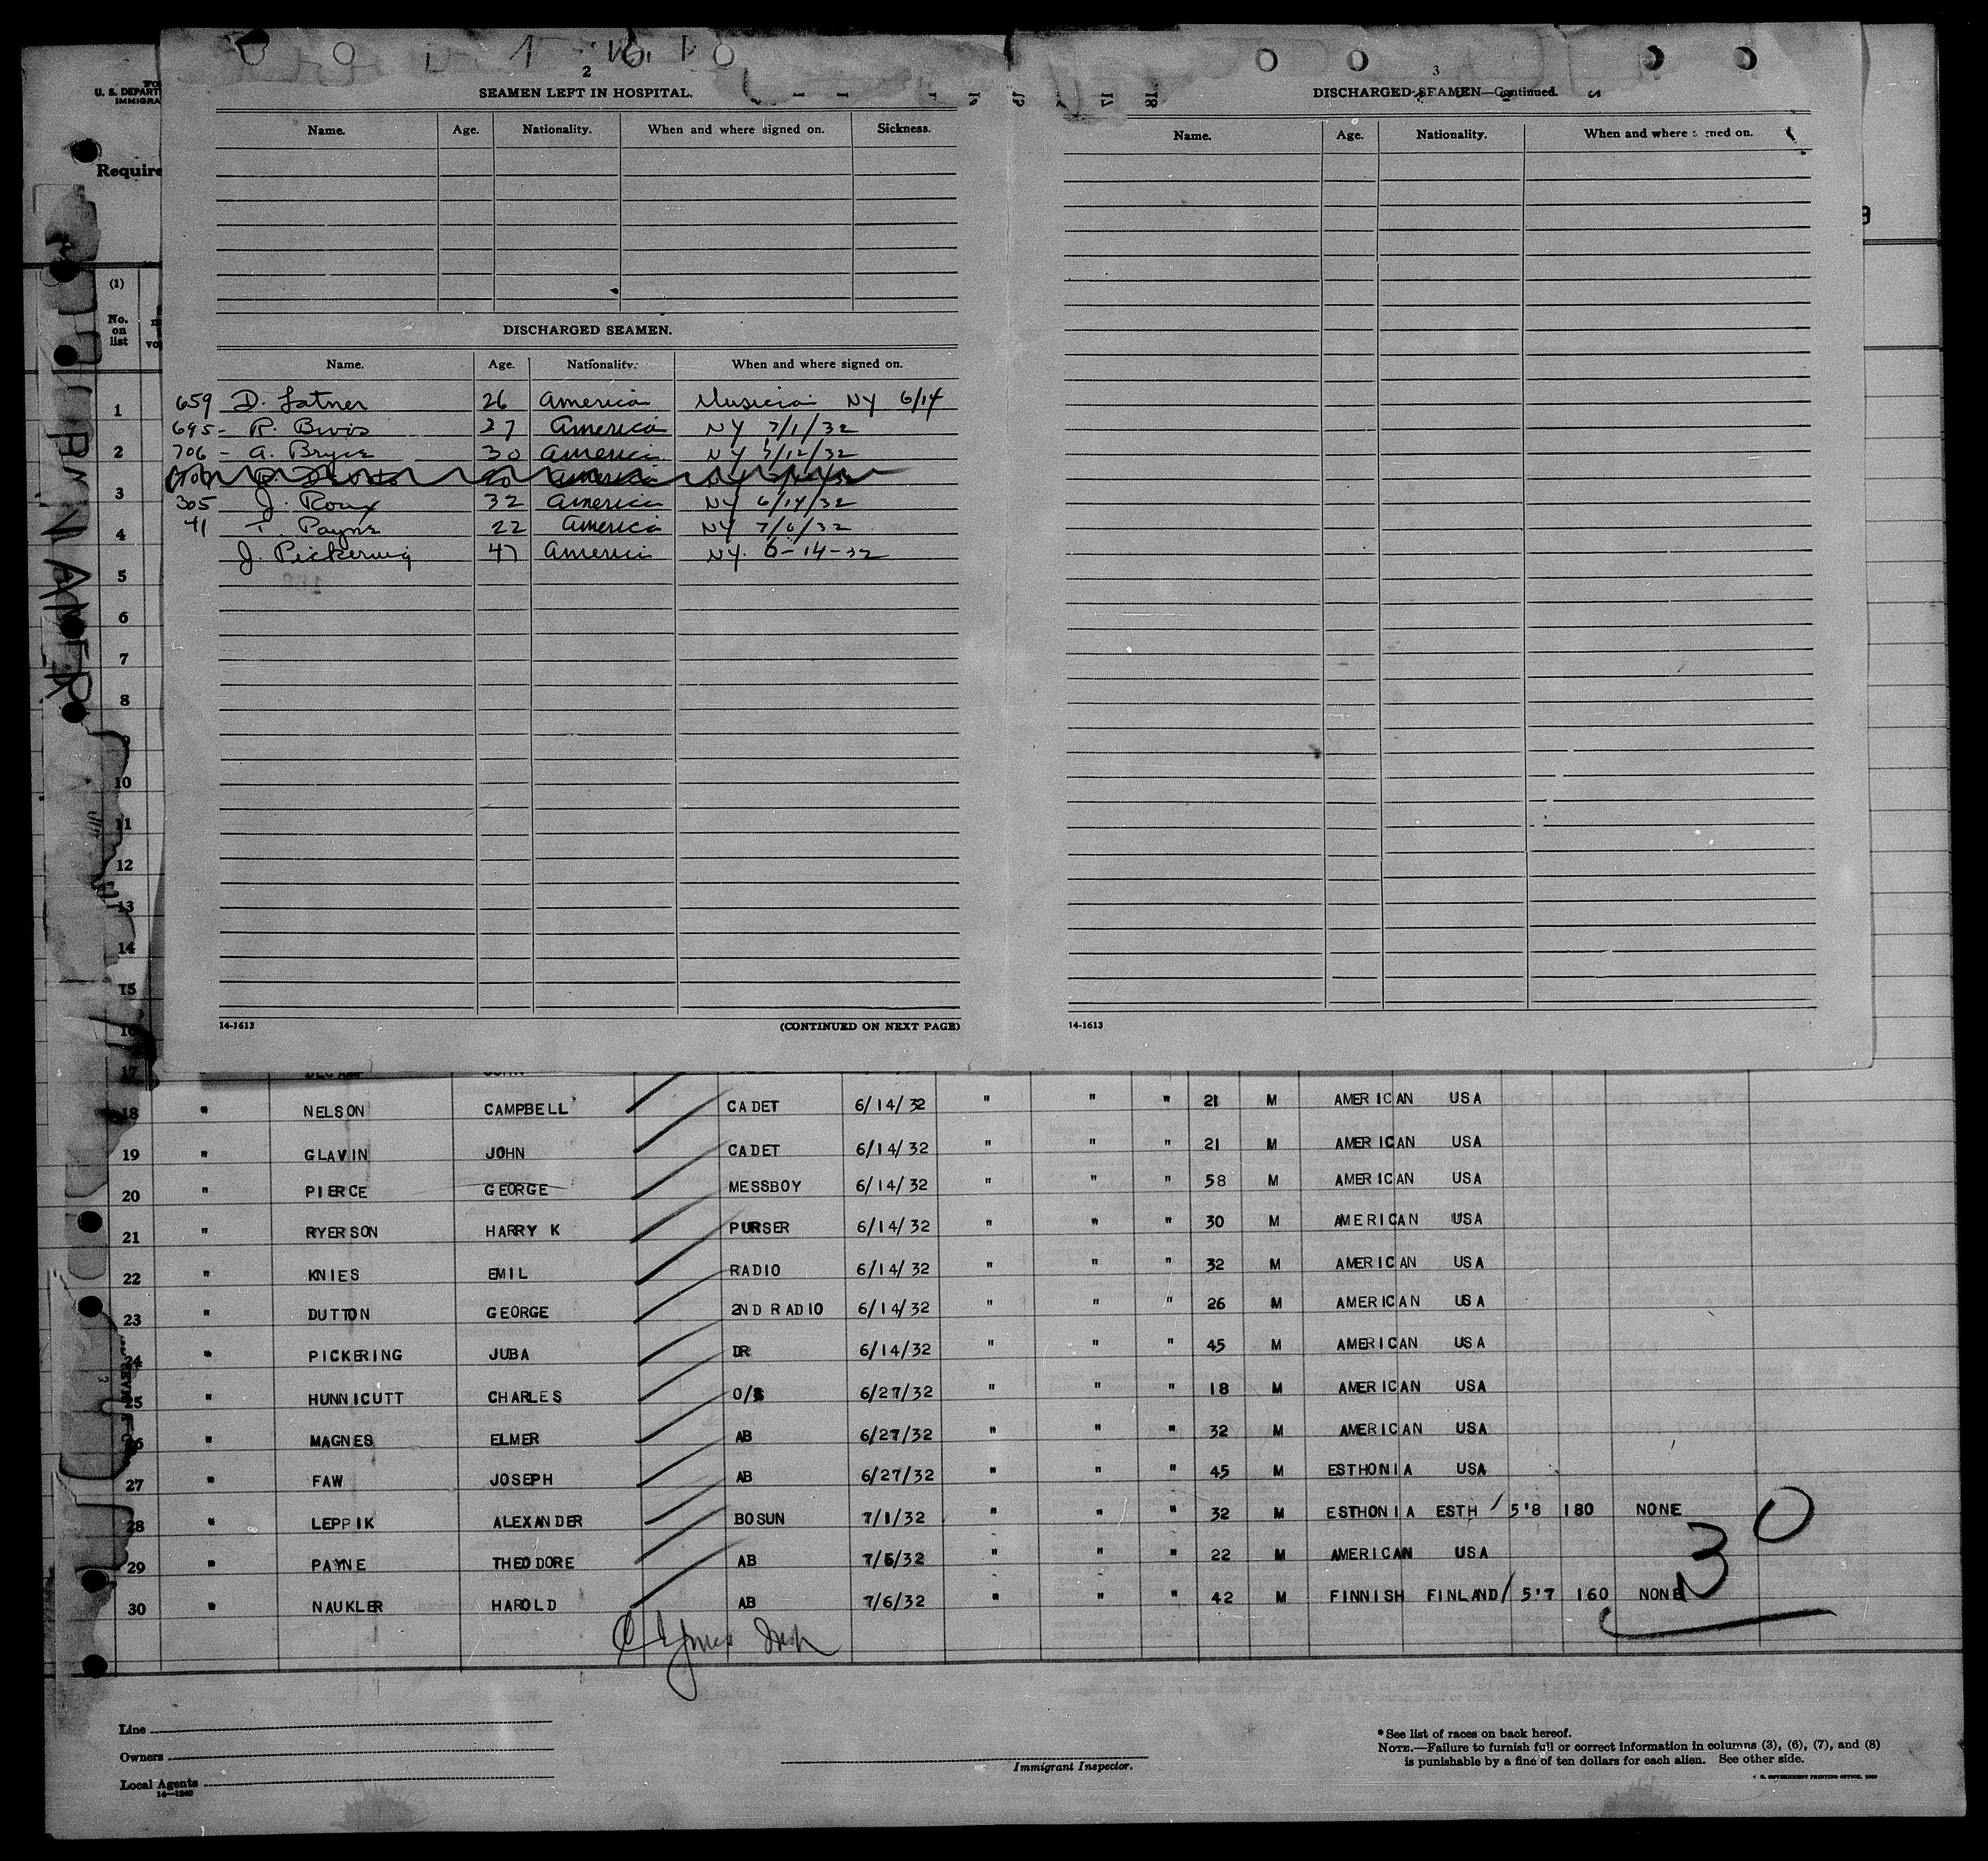 2
SEAMEN LEFT IN HOSPITAL.
Name. Age. Nationality. When and where signed on. Sickness.
DISCHARGED SEAMEN.
Name. Age. Nationality. When and where signed on.
659 D. Latner 26 America NY 6/14
695- R. 27 America NY 7/1/32
706 - A. Bryce 30 America NY 7/12/32
305 J. Roux 32 America NY 6/14/32
41 T. Payne 22 America NY 7/6/32
J. Pickering 47 America NY. 6-14-32
14-1613 (CONTINUED ON NEXT PAGE)
3
DISCHARGED SEAMEN—Continued.
Name. Age. Nationality. When and where signed on.
14-1613
U. S. DEPART
IMMIGRA
Require
(1)
No.
on
list
1
2
3
4
5
6
7
8
10
11
12
13
14
15
16
17
18 " NELSON CAMPBELL CADET 6/14/32 " " " 21 M AMERICAN USA
19 " GLAVIN JOHN CADET 6/14/32 " " " 21 M AMERICAN USA
20 " PIERCE GEORGE MESSBOY 6/14/32 " " " 58 M AMERICAN USA
21 " RYERSON HARRY K PURSER 6/14/32 " " " 30 M AMERICAN USA
22 " KNIES EMIL RADIO 6/14/32 " " " 32 M AMERICAN USA
23 " DUTTON GEORGE 2ND RADIO 6/14/32 " " " 26 M AMERICAN USA
24 " PICKERING JUBA DR 6/14/32 " " " 45 M AMERICAN USA
25 " HUNNICUTT CHARLES O/S 6/27/32 " " " 18 M AMERICAN USA
26 " MAGNES ELMER AB 6/27/32 " " " 32 M AMERICAN USA
27 " FAW JOSEPH AB 6/27/32 " " " 45 M ESTHONIA USA
28 " LEPPIK ALEXANDER BOSUN 7/1/32 " " " 32 M ESTHONIA ESTH / 5'8 180 NONE
29 " PAYNE THEODORE AB 7/5/32 " " " 22 M AMERICAN USA
30 " NAUKLER HAROLD AB 7/6/32 " " " 42 M FINNISH FINLAND/ 5'7 160 NONE
30
Line
Owners
Local Agents
14—1240
Immigrant Inspector.
* See list of races on back hereof.
NOTE.—Failure to furnish full or correct information in columns (3), (6), (7), and (8)
is punishable by a fine of ten dollars for each alien. See other side.